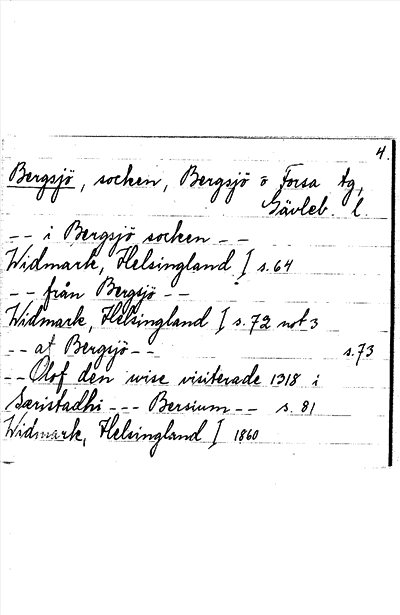 4.
Bergsjö, socken, Bergsjö o Forsa tg,
Gävleb. l.
-- i Bergsjö socken --
Widmark, Helsingland I s. 64
-- från Bergsjö --
Widmark, Helsingland I s. 72 not 3
-- af Bergsjö -- s. 73
-- Olof den wise visiterade 1318 i
Særistadhi --- Bersium -- s. 81
Widmark, Helsingland I 1860